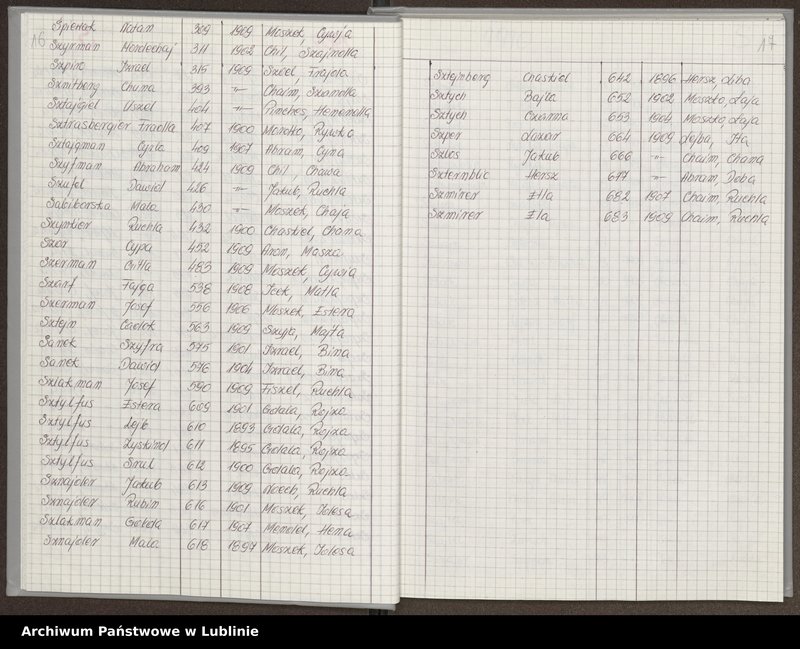 16
Śpiewak Natan 309 1909 Moszek, Cywja
Szyrman Mordechaj 311 1902 Chil, Szajndla
Szpiro Izrael 315 1909 Szoel, Frajda
Szmitberg Chuma 393 -"- Chaim, Szandla
Sztajgiel Uszel 404 -"- Pinches, Henendla
Sztrasbergier Fradla 407 1900 Mordko, Rywka
Sztajgman Cyrla 409 1907 Abram, Cyna
Szyfman Abraham 424 1909 Chil, Chawa
Szufel Dawid 426 -"- Jakub, Ruchla
Sabiborska Mala 430 -"- Moszek, Chaja
Szynkier Ruchla 432 1900 Chaskiel, Chana
Szor Cypa 452 1909 Aron, Maska
Szerman Gitla 483 1909 Moszek, Cywia
Szarf Fajga 538 1908 Icek, Matla
Szerman Josef 556 1906 Moszek, Estera
Sztejn Cadok 563 1909 Szyja, Majta
Sanek Szyfra 575 1901 Izrael, Bina
Sanek Dawid 576 1904 Izrael, Bina
Szlakman Josef 590 1909 Fiszel, Ruchla
Sztylfus Estera 609 1901 Gdala, Rojza
Sztylfus Lejb 610 1893 Gdala, Rojza
Sztylfus Zyskind 611 1895 Gdala, Rojza
Sztylfus Srul 612 1900 Gdala, Rojza
Sznajder Jakub 613 1909 Noech, Ruchla
Sznajder Rubin 616 1901 Moszek, Idesa
Szlakman Golda 617 1907 Mendel, Hena
Sznajder Mala 618 1897 Moszek, Idesa
17
Sztejnberg Chaskiel 642 1896 Hersz, Liba
Sztych Bajla 652 1902 Moszko, Łaja
Sztych Czarna 653 1904 Moszko, Łaja
Szper Lazar 664 1909 Lejba, Ita
Szlos Jakub 666 -"- Chaim, Chana
Szternblic Hersz 677 -"- Abram, Doba
Szmirer Ella 682 1907 Chaim, Ruchla
Szmirer Ela 683 1909 Chaim, Ruchla
Archiwum Państwowe w Lublinie